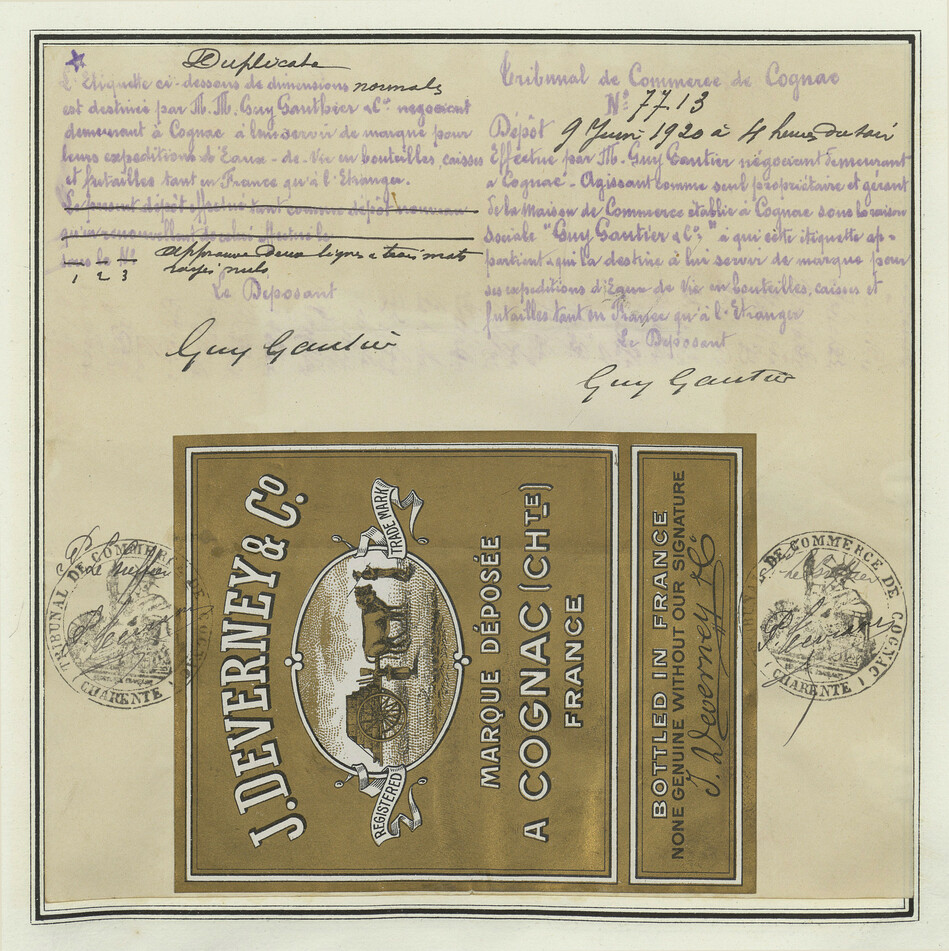 Duplicata
L'Etiquette ci-dessous de dimensions normales
est destinée par M.M. Guy Gauthier & Cie négociant
demeurant à Cognac à leur servir de marque pour
leurs expeditions d'Eaux-de-Vie en bouteilles, caisses
et futailles tant en France qu'à l'Etranger.
Le present dépôt effectué tant comme dépôt nouveau
qu'en renouvellant de celui effectué le
sous le No
1 2 3
approuvé deux lignes & trois mots
rayés nuls
Le Deposant
Guy Gautier
Tribunal de Commerce de Cognac
No 7713
Dépôt 9 Juin 1920 à 4 heures du soir
Effectué par M. Guy Gautier négociant demeurant
à Cognac - Agissant comme seul propriétaire et gérant
de la Maison de Commerce établie à Cognac sous la raison
sociale "Guy Gautier & Co," à qui cette étiquette ap-
partient & qui la destine à lui servir de marque pour
ses expeditions d'Eaux de Vie en bouteilles, caisses et
futailles tant en France qu'à l'Etranger
Le Deposant
Guy Gautier
J. DEVERNEY & Co.
TRADE MARK
REGISTERED
MARQUE DÉPOSÉE
A COGNAC (CHTE)
FRANCE
BOTTLED IN FRANCE
NONE GENUINE WITHOUT OUR SIGNATURE
J. Deverney & Co
TRIBUNAL DE COMMERCE DE COGNAC
CHARENTE
Le Greffier
DE COMMERCE DE COGNAC
CHARENTE
Le Greffier